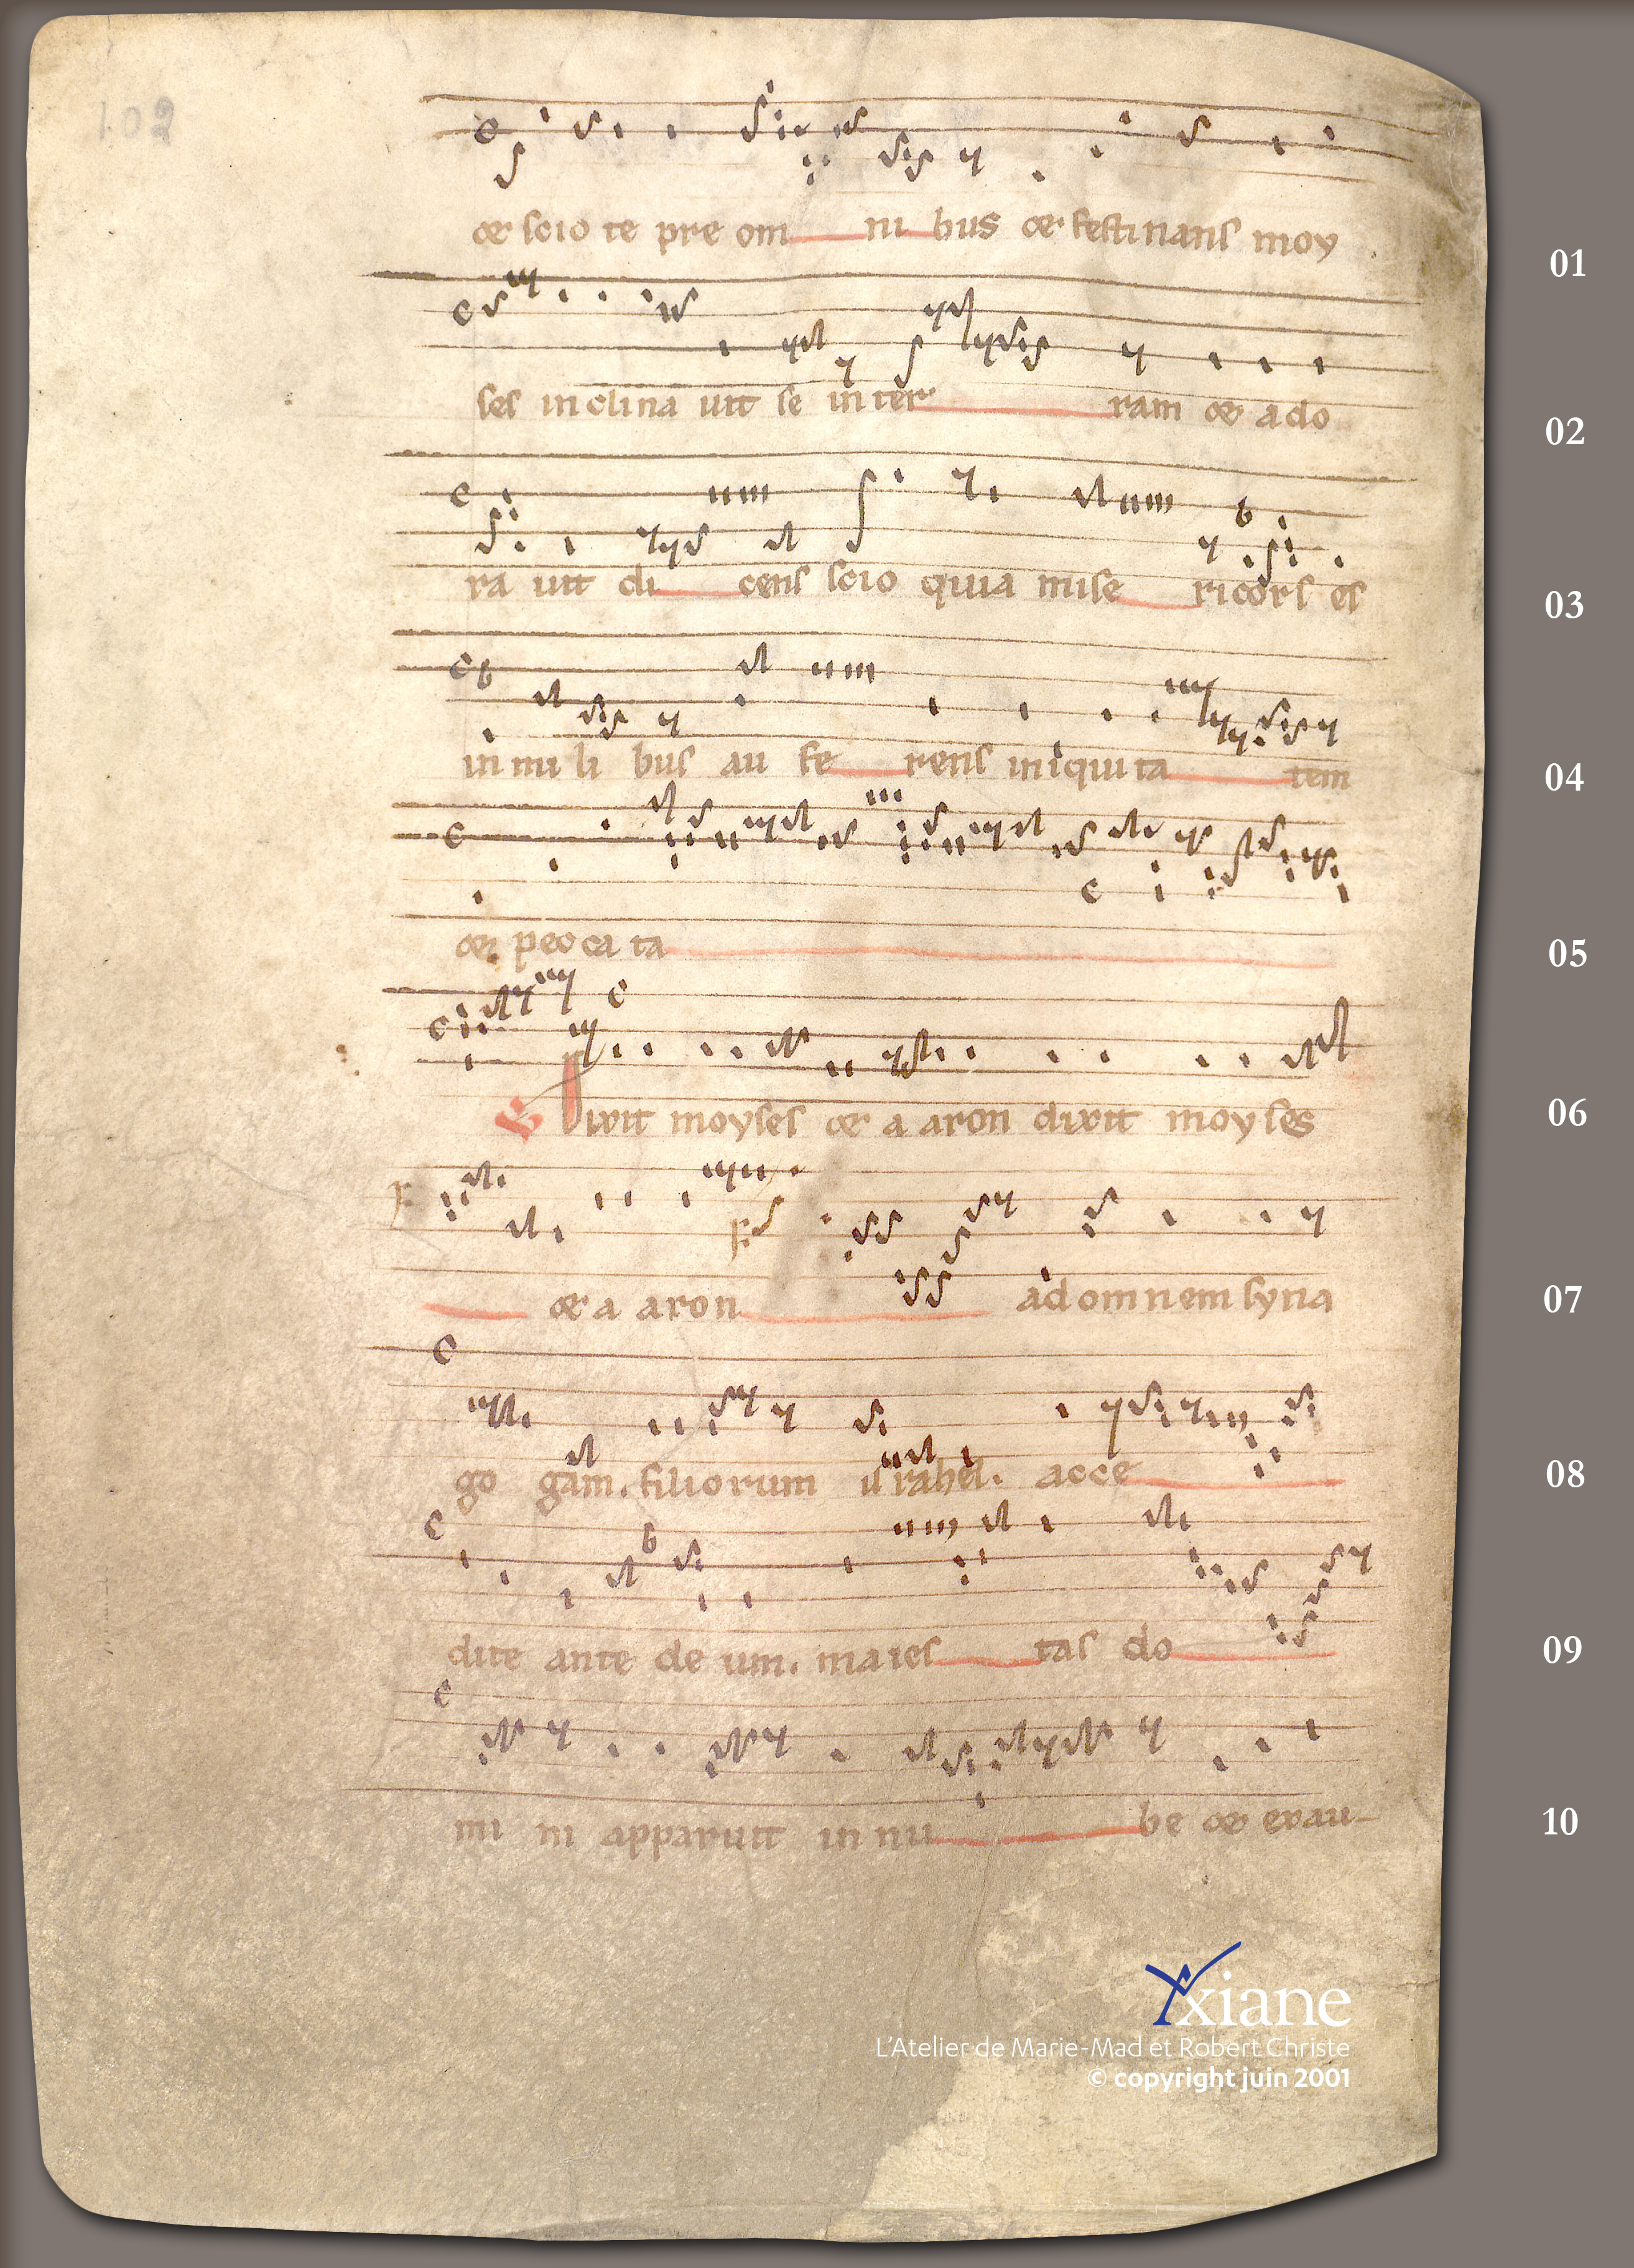 102
et scio te pre om ni bus et festinans moy
01
ses inclina uit se in ter ram et ado
02
ra uit di cens scio quia mise ricors es
03
in mi li bus au fe rens iniqui ta tem
04
et pecca ta
05
Dixit moyses et a aron dixit moyses
06
et a aron ad omnem syna
07
go gam. filiorum israhel. acce
08
dite ante de um. maies tas do
09
mi ni apparuit in nu be et exau-
10
xiane
L'Atelier de Marie-Mad et Robert Christe
© copyright juin 2001